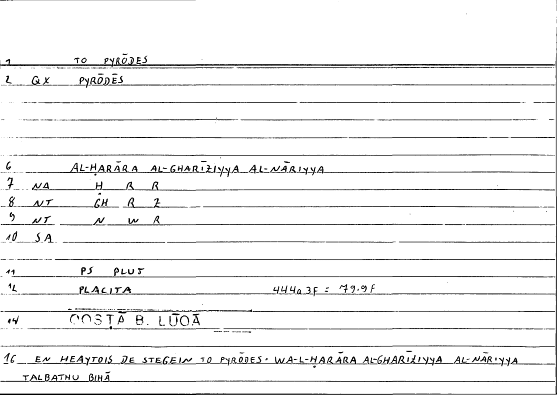 1 TO PYRŌDES
2 QX PYRŌDĒS
6 AL-ḤARĀRA AL-GHARĪZIYYA AL-NĀRIYYA
7 NA Ḥ R R
8 NT GH R Z
9 NT N W R
10 SA
11 PS PLUT
12 PLACITA 444a3f = 79.9f
14 QOSṬĀ B. LŪQĀ
16 EN HEAYTOIS DE STEGEIN TO PYRŌDES. WA-L-ḤARĀRA AL-GHARĪZIYYA AL-NĀRIYYA
TALBATHU BIHĀ